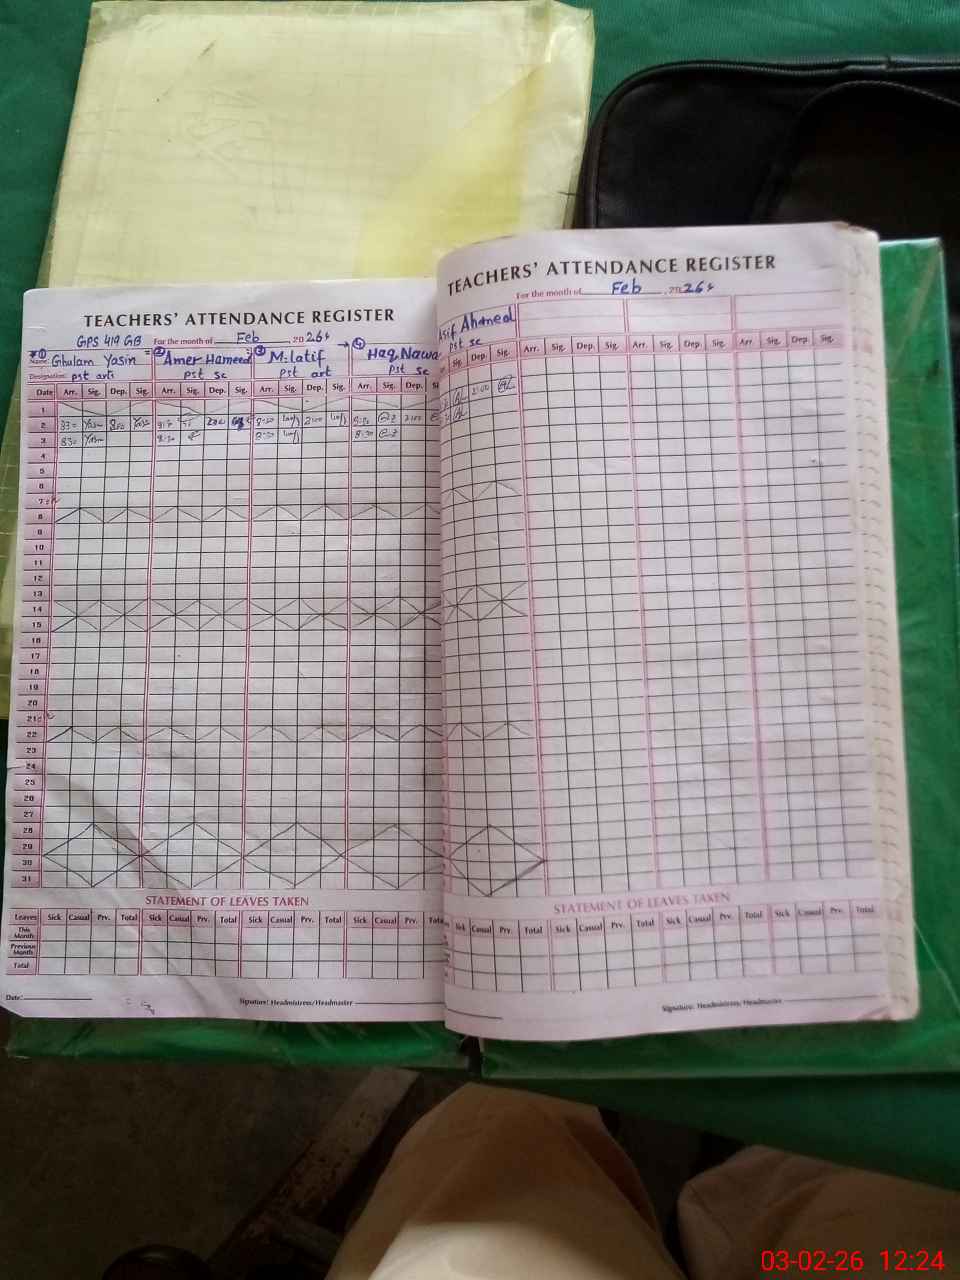 TEACHERS' ATTENDANCE REGISTER
GPS 419 GB For the month of Feb 2026
① ② ③ → ④
Name: Ghulam Yasin Amer Hameed M.latif Haq Nawa
Designation: pst arts pst sc pst art pst sc
Date Arr. Sig. Dep. Sig. Arr. Sig. Dep. Sig. Arr. Sig. Dep. Sig. Arr. Sig. Dep. Si
1
2 830 8:30 2:00 8:30
3 830 8:30 8:30 8:30
4
5
6
7
8
9
10
11
12
13
14
15
16
17
18
19
20
21
22
23
24
25
26
27
28
29
30
31
STATEMENT OF LEAVES TAKEN
Leaves Sick Casual Prv. Total Sick Casual Prv. Total Sick Casual Prv. Total Sick Casual Prv. Tota
This Month
Previous Month
Total
Date: Signature: Headmistress/Headmaster
TEACHERS' ATTENDANCE REGISTER
For the month of Feb 2026
sif Ahmed
pst sc
Sig. Dep. Sig. Arr. Sig. Dep. Sig. Arr. Sig. Dep. Sig. Arr. Sig. Dep. Sig.
2:00
STATEMENT OF LEAVES TAKEN
Sick Casual Prv. Total Sick Casual Prv. Total Sick Casual Prv. Total Sick Casual Prv. Total
Signature: Headmistress/Headmaster
03-02-26 12:24